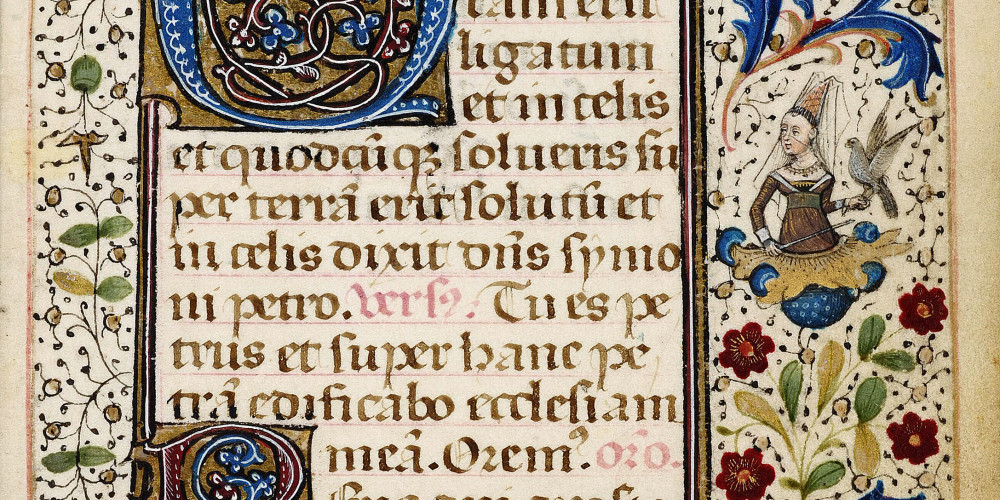 ram erit
ligatum
et in celis
et quodcūqȝ solueris su
per terrā erit solutū et
in celis dixit dn̄s symo
ni petro. versꝰ. Tu es pe
trus et super hanc pe
trā edificabo ecclesiam
meā. Oremꝰ. orō.